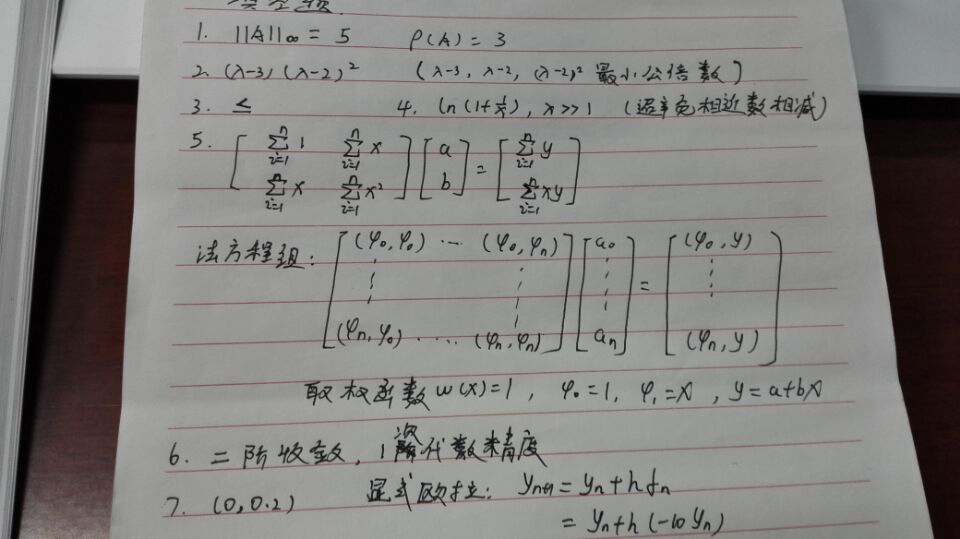 填空题.
1. ||A||∞ = 5 ρ(A) = 3
2. (λ-3)(λ-2)² (λ-3, λ-2, (λ-2)² 最小公倍数)
3. ≤ 4. ln(1+1/x), x>>1 (避免相近数相减)
5. [ Σ_{i=1}^{n} 1 Σ_{i=1}^{n} x ] [ a ] = [ Σ_{i=1}^{n} y ]
[ Σ_{i=1}^{n} x Σ_{i=1}^{n} x² ] [ b ] [ Σ_{i=1}^{n} xy ]
法方程组: [ (φ₀,φ₀) ⋯ (φ₀,φn) ] [ a₀ ] = [ (φ₀,y) ]
⋮ ⋮ ⋮ ⋮
[ (φn,φ₀) ⋯ (φn,φn) ] [ an ] [ (φn,y) ]
取权函数 w(x)=1, φ₀=1, φ₁=x, y=a+bx
6. 二阶收敛, 1次代数精度
7. (0, 0.2) 显式欧拉: y_{n+1} = y_n + h f_n
= y_n + h(-10y_n)